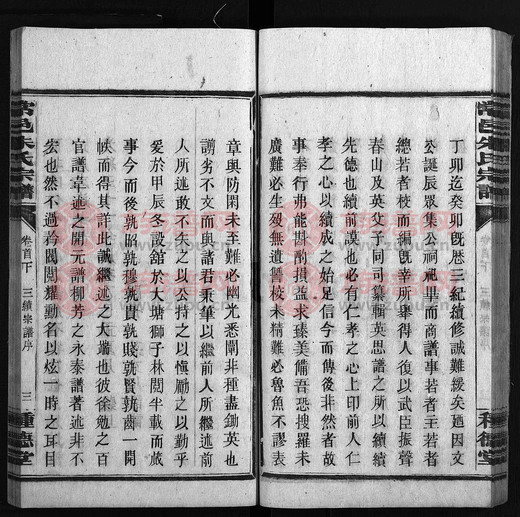 丁卯迄癸卯既歷三紀續修誠難緩矣迺因文
公誕辰眾集公祠祀畢而商譜事若者主若者
總若者校而編既幸所舉得人復以武臣振聲
春山及英父子同司纂輯英思譜之所以續續
先德也續前謨也必有仁孝之心上印前人仁
孝之心以續成之始足信今而傳後非然者故
事奉行弗能斟酌損益求臻美備吾恐搜羅未
廣難必生歿無遺讐校未精難必魯魚不謬表
章與防閑未至難必幽光悉闡非種盡鋤英也
謭劣不文而與諸君秉筆以繼前人所繼述前
人所述敢不矢之以公持之以慎勵之以勤乎
爰於甲辰冬設館於大塘獅子林閱半載而蕆
事今而後孰昭孰穆孰貴孰賤孰賢孰齒一開
帙而得其詳此誠繼述之大端也彼徐勉之百
官譜韋述之開元譜柳芳之永泰譜著述非不
宏也然不過夸閥閱耀勳名以炫一時之耳目
常邑朱氏宗譜
卷首下
三續宗譜序
三
種德堂